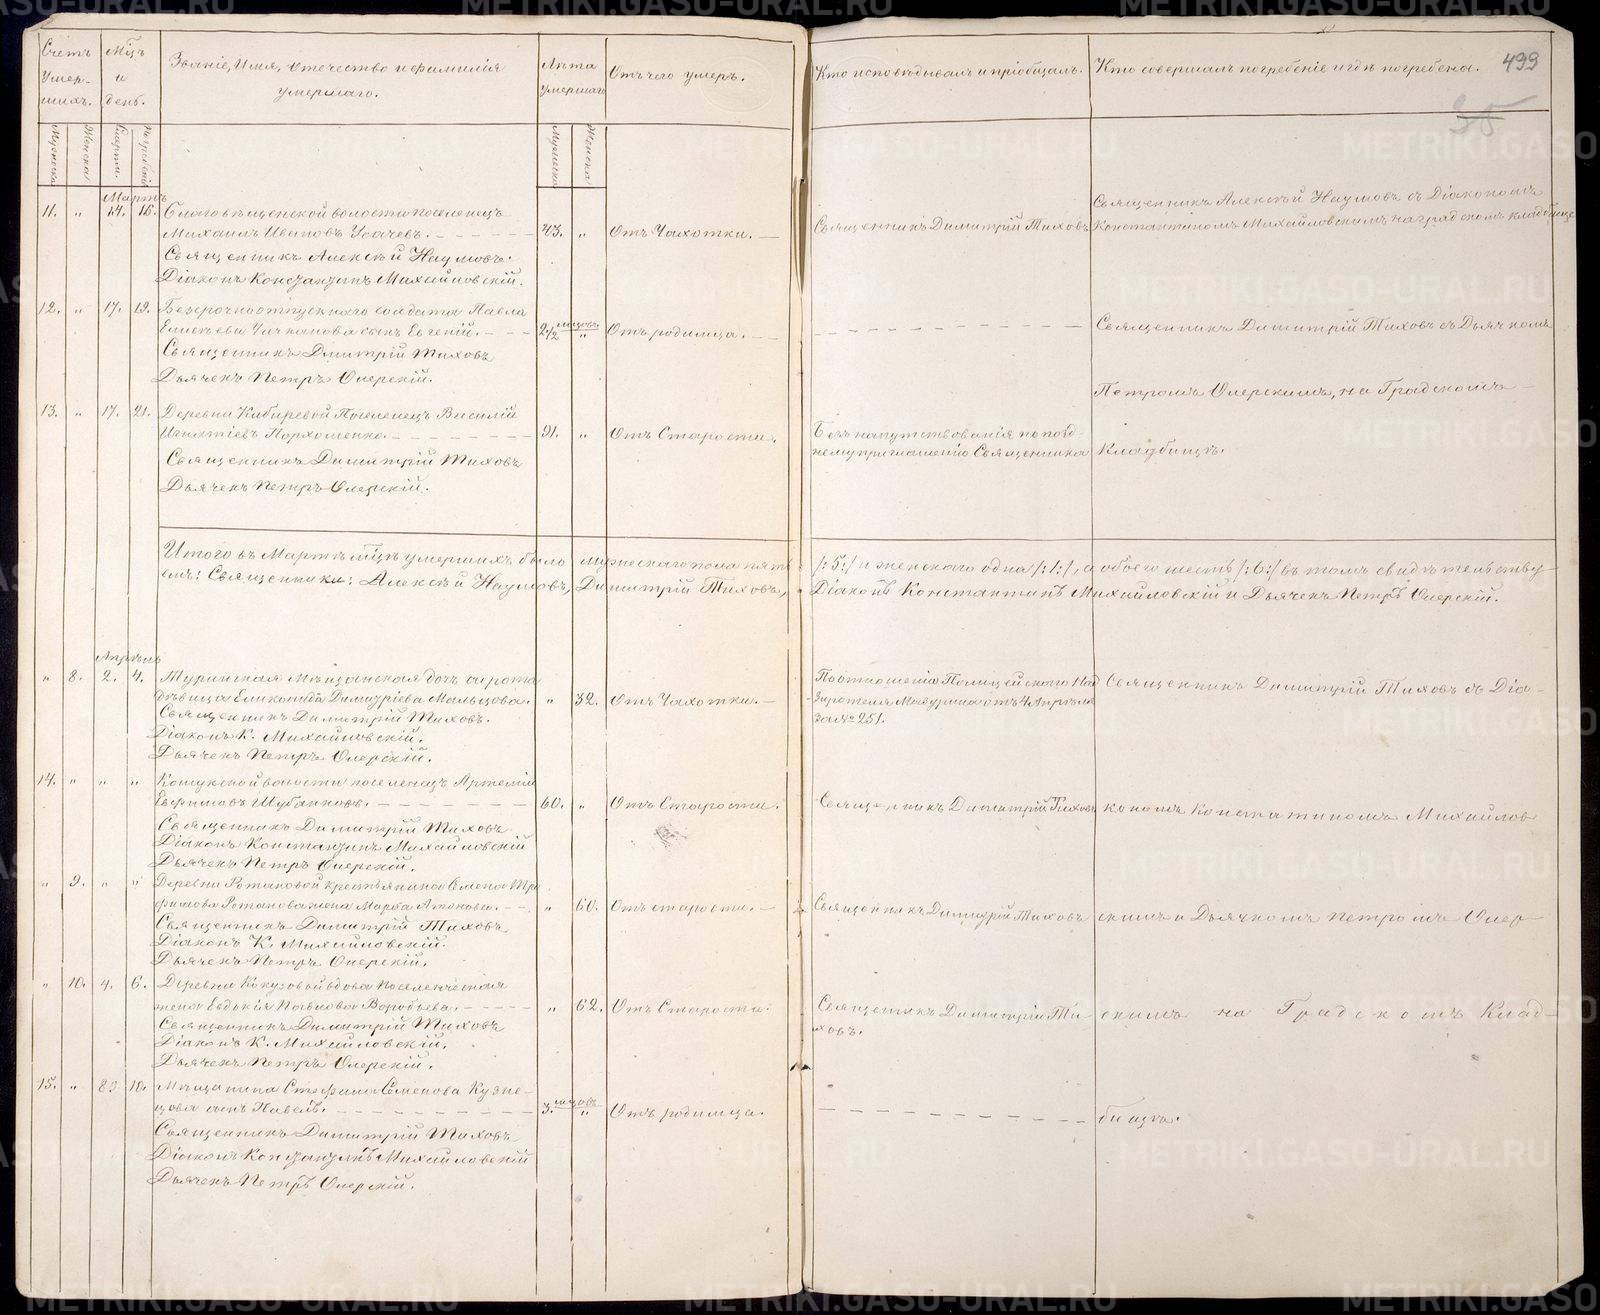 Счетъ Умер-шихъ.
Мцъ и день.
Званіе, Имя, Отечество и фамилія умершаго.
Лѣта умершаго
Отъ чего умеръ.
Кто исповѣдывалъ и пріобщалъ.
Кто совершалъ погребеніе и гдѣ погребены.
499
35
Мужеска
Женска
Смерти.
Погребенія
Мужеска
Женска
Мартъ
11. " 14. 16. Благовѣщенской волости поселенецъ
Михаилъ Ивановъ Усачевъ. 43. " Отъ Чахотки. Священникъ Димитрій Тиховъ
Священникъ Алексѣй Наумовъ съ Діакономъ
Константиномъ Михайловскимъ на градскомъ кладбище
Священникъ Алексѣй Наумовъ.
Діаконъ Константинъ Михайловскій.
12. " 17. 19. Безсрочноотпускнаго солдата Павла
Елисѣева Чачканова сынъ Евгеній. 2½ мцовъ " Отъ родимца. Священникъ Димитрій Тиховъ съ Дьячкомъ
Священникъ Димитрій Тиховъ
Дьячекъ Петръ Оперскій.
Петромъ Оперскимъ, на Градскомъ
13. " 17. 21. Деревни Кабыревой Поселенецъ Василій
Игнатіевъ Пархоменко. 91. " Отъ Старости. Безъ напутствованія по позд-
нему приглашенію Священника Кладбищѣ.
Священникъ Димитрій Тиховъ
Дьячекъ Петръ Оперскій.
Итого въ Мартѣ мцѣ умершихъ было мужескаго пола пять /:5:/ и женскаго одна /:1:/, а обоего шесть /:6:/ въ томъ свидѣтельству-
емъ: Священники: Алексѣй Наумовъ, Димитрій Тиховъ, Діаконъ Константинъ Михайловскій и Дьячекъ Петръ Оперскій.
Апрѣль
" 8. 2. 4. Туринская Мѣщанская дочь сирота
дѣвица Еликонида Димитріева Мальцова. " 32. Отъ Чахотки. По отношенію Полицейскаго Над-
зирателя Мизурина отъ 4 Апрѣля
за № 251.
Священникъ Димитрій Тиховъ съ Діа-
Священникъ Димитрій Тиховъ.
Діаконъ К. Михайловскій.
Дьячекъ Петръ Оперскій.
14. " " " Кошукской волости поселенецъ Артемій
Евфимовъ Шубянковъ. 60. " Отъ Старости. Священникъ Димитрій Тиховъ кономъ Константиномъ Михайлов
Священникъ Димитрій Тиховъ
Діаконъ Константинъ Михайловскій
Дьячекъ Петръ Оперскій.
" 9. " " Деревни Ротановой крестьянина Семена Тро
фимова Ротанова жена Марѳа Антонова. " 60. Отъ старости. Священникъ Димитрій Тиховъ скимъ и Дьячкомъ Петромъ Опер-
Священникъ Димитрій Тиховъ
Діаконъ К. Михайловскій.
Дьячекъ Петръ Оперскій.
" 10. 4. 6. Деревни Кокузовой вдова Поселенческая
жена Евдокія Павлова Воробьева. " 62. Отъ Старости. Священникъ Димитрій Ти-
ховъ.
скимъ на Градскомъ Клад-
Священникъ Димитрій Тиховъ
Діаконъ К. Михайловскій.
Дьячекъ Петръ Оперскій.
15. " 8 10. Мѣщанина Стефана Семенова Кузне-
цова сынъ Павелъ. 3. мцовъ " Отъ родимца. бищѣ.
Священникъ Димитрій Тиховъ
Діаконъ Константинъ Михайловскій
Дьячекъ Петръ Оперскій.
METRIKI.GASO-URAL.RU